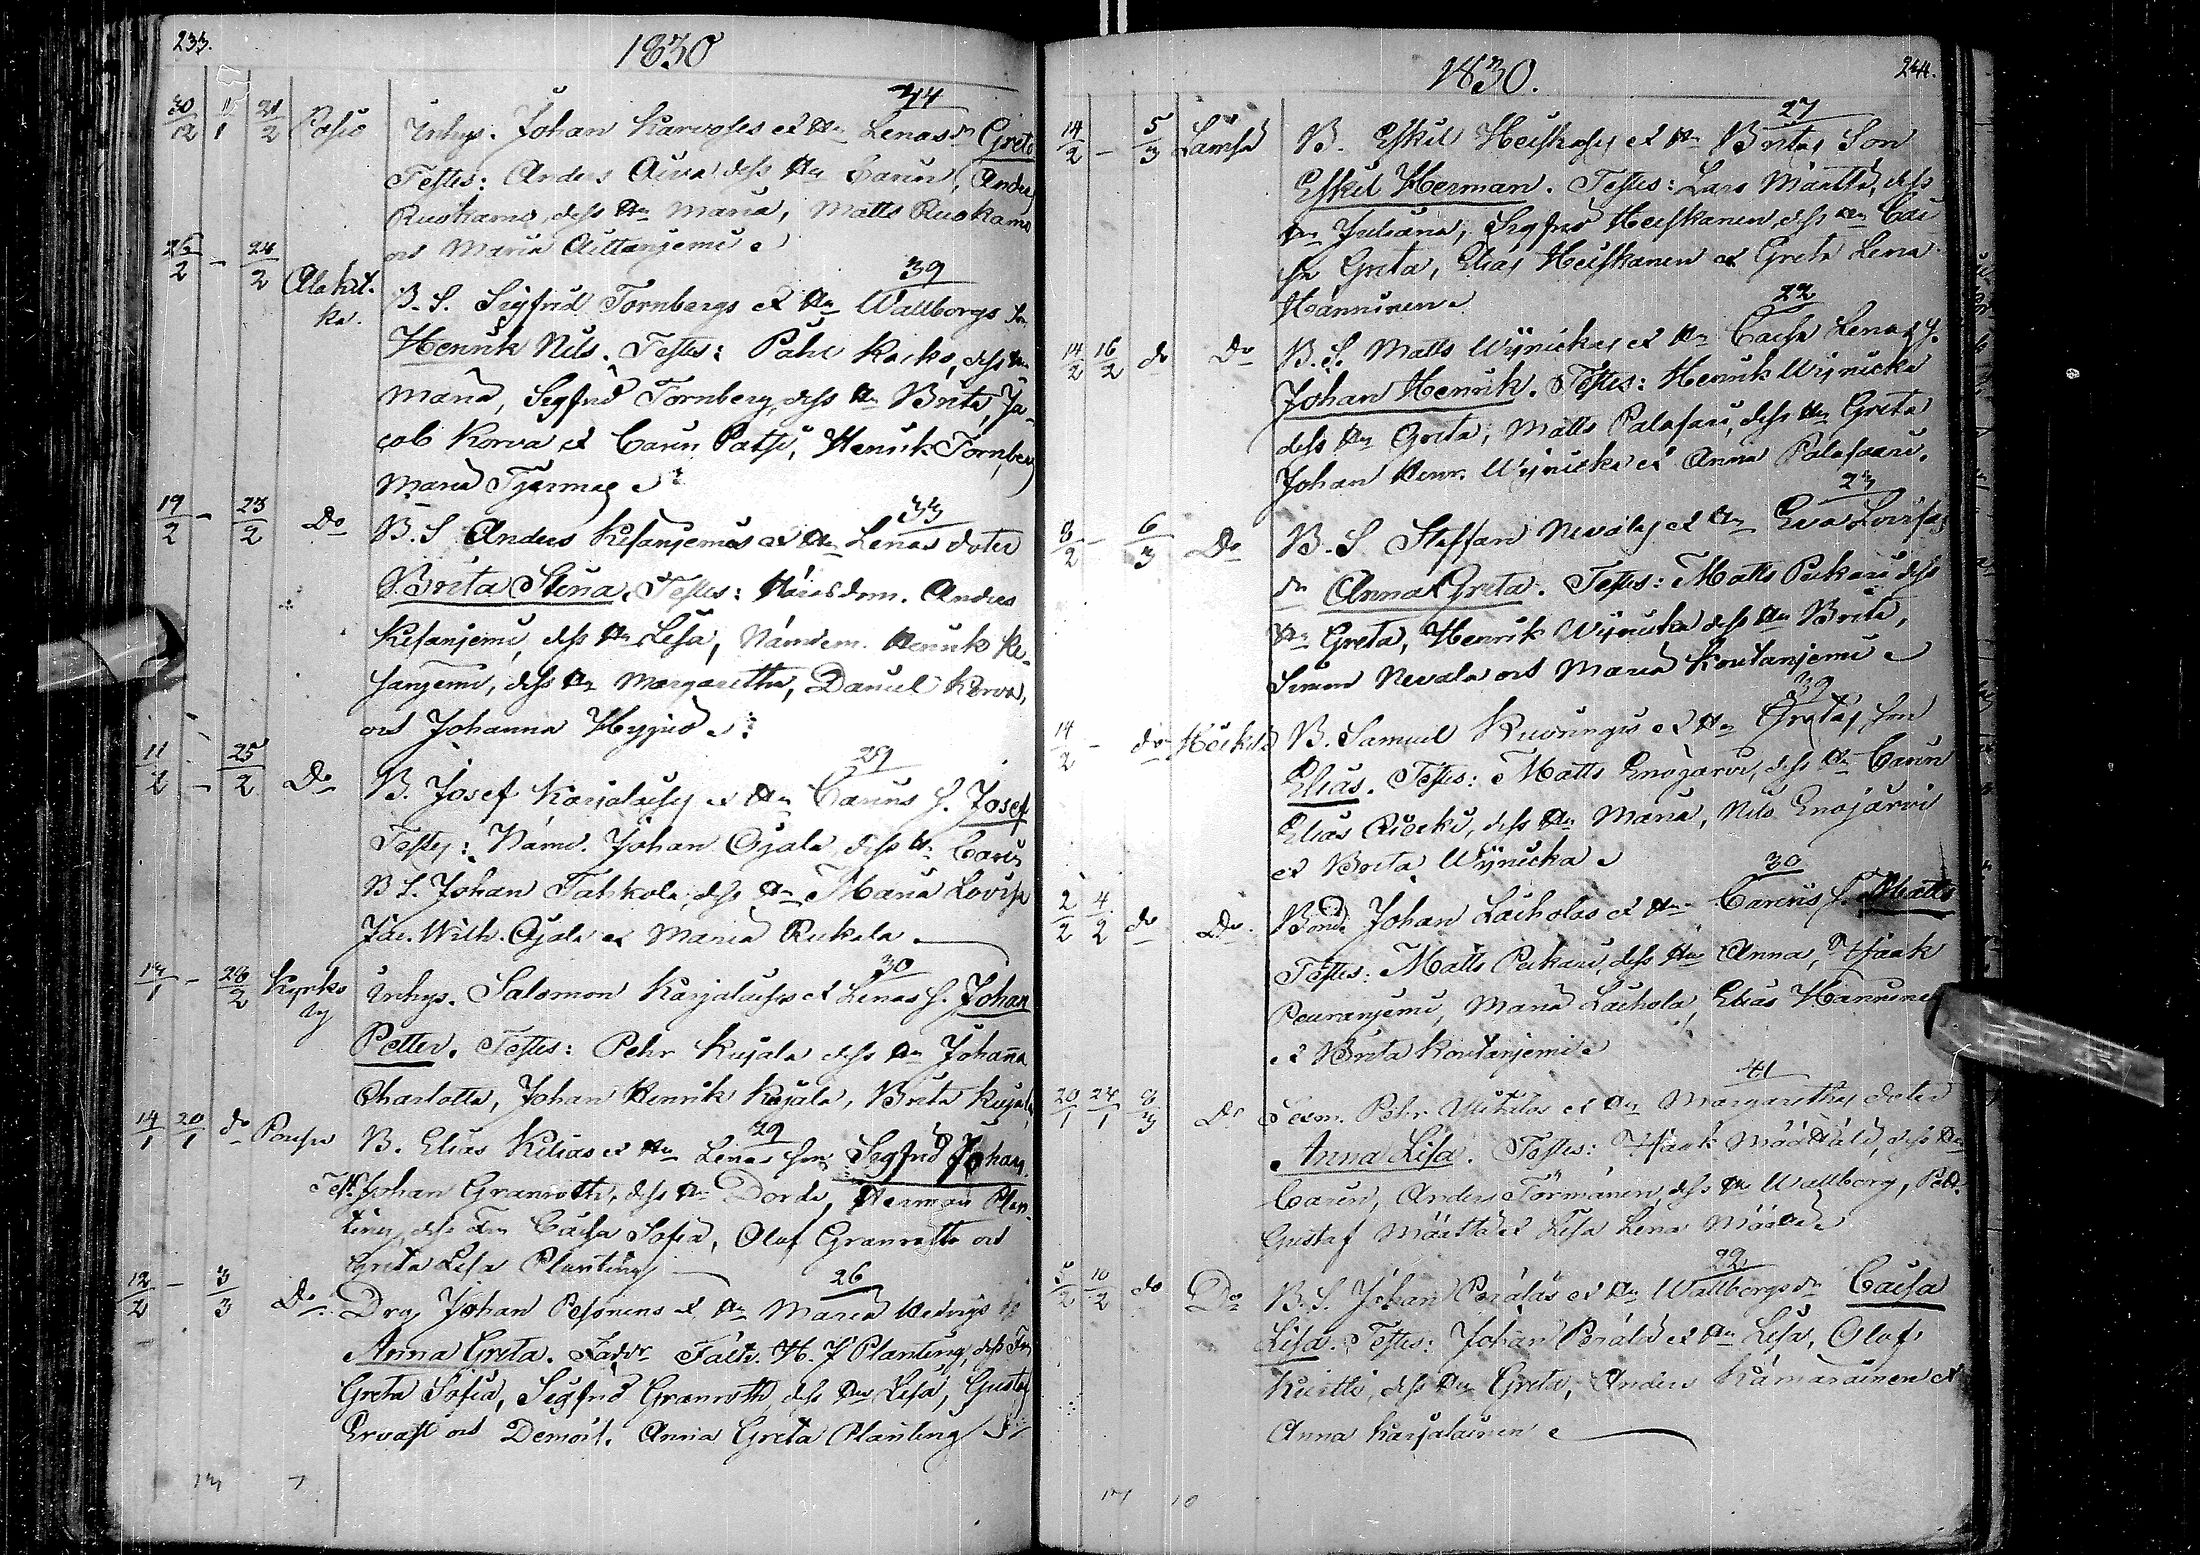 233.
1830
44
30/12 11/1 21/2 Posio Inhys. Johan Karvoses et Hu Lenas dr Greta
Testes: Anders Aiva dess Hu Carin, Anders
Ruokamo, dess Hu Maria, Matts Ruokamo
och Maria
39
/2 - 24/2 Alakit-
ka. B. S. Sigfrid Tornbergs et Hu Wallborgs Son
Henrik Nils. Testes: Påhl Karko, dess Hu
Maria, Sigfrid Tornberg, dess Hu Brita, Ja-
cob Korva et Carin Patsi, Henrik Tornberg
Maria
33
19/2 - 25/2 Do B. S. Anders Kesänjemis et Hu Lenas doter
Brita Stina. Testes: Häradsdom. Anders
Kesanjemi, dess Hu Lisa, Nämdem. Henrik Ke-
sanjemi, dess Hu Margaretha, Daniel Korva,
och Johanna
29
11/2 - 25/2 Do B. Josef Karjalaises et Hu Carins S. Josef
Testes: Nämd. Johan Ojala dess H. Carin
B S. Johan Tahkola, dess Hu Maria Lovisa
Jac. Wilh. Ojala et Maria Rukala
30
Kyrko
by Inhys. Salomon Karjalaises et Lenas S. Johan
Petter. Testes: Pehr Kujala dess Hu Johanna
Charlotta, Johan Henrik Kujala, Brita Kujala
29
14/1 20/1 do B. Elias Kilias et Hu Lenas son Sigfrid Johan
Test. Johan Granroth, dess Hu Dorde, Herman Plan-
ting, dess Fru Caisa Sofia, Olof Granroth och
Greta Lisa Planting
26
12/2 - 3/3 Do Drg Johan Pesonens et Hu Maria
Anna Greta. Faddr Fältv. H. J Planting, dess Fru
Greta Sofia, Sigfrid Granroth dess Hu Lisa, Gustaf
Ervast och Demois. Anna Greta Planting
244.
1830.
27
14/2 - 5/3 Lämsä B. Eskil Heiskases et Hu Britas Son
Eskil Herman. Testes: Lars Määttä, dess
Hu Juliana, Sigfrid Heiskanen dess Hu Cai-
sa Greta, Elias Heiskanen et Greta Lena
Hänninen
22
14/2 16/2 do Do B. S. Matts Wijnickas et Hu Caisa Lenas S.
Johan Henrik. Testes: Henrik Wijnicka
dess Hu Greta, Matts Palosari, dess Hu Greta
Johan Henr. Wijnicka et Anna Palosaari.
23
8/2 - 6/3 Do B. S. Staffan Nevalas et Hu Eva Lovisas
dr Anna Greta. Testes: Matts Pekari dess
Hu Greta, Henrik Wijnicka dess Hu Brita,
Simon Nevala och Maria Koutanjemi
39
14/2 - do B. Samuel Kuvungis et Hu Gretas son
Elias. Testes: Matts Enojarvi, dess Hu Carin
Elias Riecki, dess Hu Maria, Nils Enojärvi
et Brita Wijnicka
30
2/2 4/2 do Do Bond. Johan Laiholas et Hu Carins S. Matts
Testes: Matts Pekari, dess Hu Anna, Isaak
Peuranjemi, Maria Laihola, Elias Hanninen
et Brita Koutanjemi
41
20/1 24/1 8/3 Do Sexm. Pehr Ylitalos et Hu Margarethas doter
Anna Lisa. Testes: Isaak Määttälä, dess Hu
Carin, Anders Törmänen, dess Hu Wallborg, Pehr
Gustaf Määttä et Lisa Lena
22
5/2 10/2 do Do B. S. Johan Peräläs et Hu Wallborgs dr Caisa
Lisa. Testes: Johan Perälä et Hu Lisa, Olof
Kurtti, dess Hu Greta, Anders Kämäräinen et
Anna Karjalainen
17 10